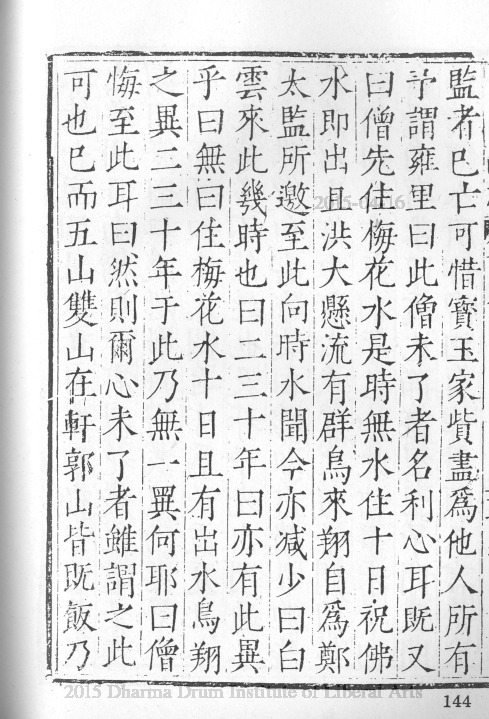 監者已亡可惜寳玉家貲盡爲他人所有
予謂雍里曰此僧未了者名利心耳既又
曰僧先住梅花水是時無水住十日祝佛
水即出且洪大懸流有群鳥來翔自爲鄭
太監所邀至此向時水聞今亦减少曰白
雲來此幾時也曰二三十年曰亦有此異
乎曰無曰住梅花水十日且有出水鳥翔
之異二三十年于此乃無一異何耶曰僧
悔至此耳曰然則爾心未了者雖謂之此
可也已而五山雙山在軒郭山皆既飯乃
2015 Dharma Drum Institute of Liberal Arts
144